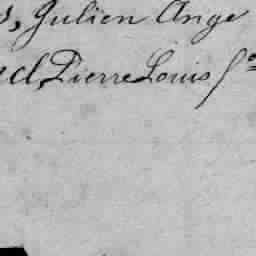 s, Julien Ange
el, Pierre Louis